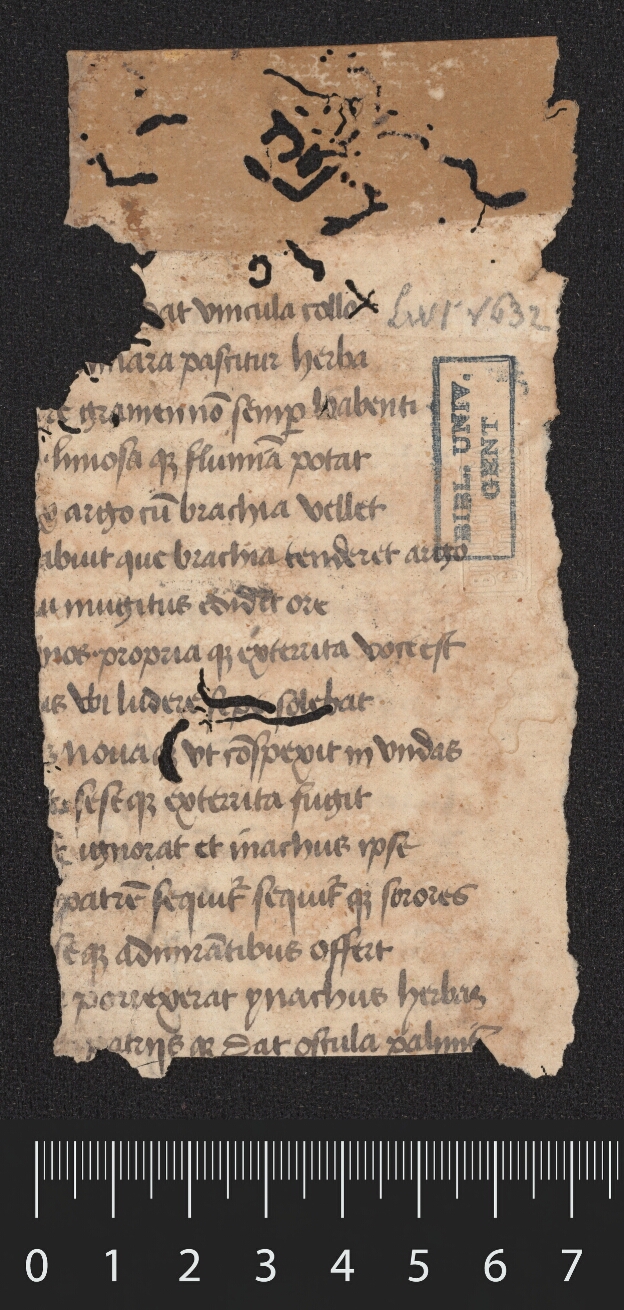 dat vincula collo
amara pascitur herba
gramen nō semꝑ habenti
limosa qꝫ flumīa potat
argo cū brachia vellet
abuit que brachia tenderet argo
mugitus edidit ore
nos propria qꝫ exterrita voce est
is vbi ludere sepe solebat
noua vt cōspexit in vndas
seseqꝫ exterrita fugit
ignorat et inachus ipse
patrē sequit᷑ sequit᷑ qꝫ sorores
seqꝫ admirātibus offert
porrexerat ynachus herbas
patrijs qꝫ dat oscula palmis
BIBL. UNIV.
GENT
0 1 2 3 4 5 6 7